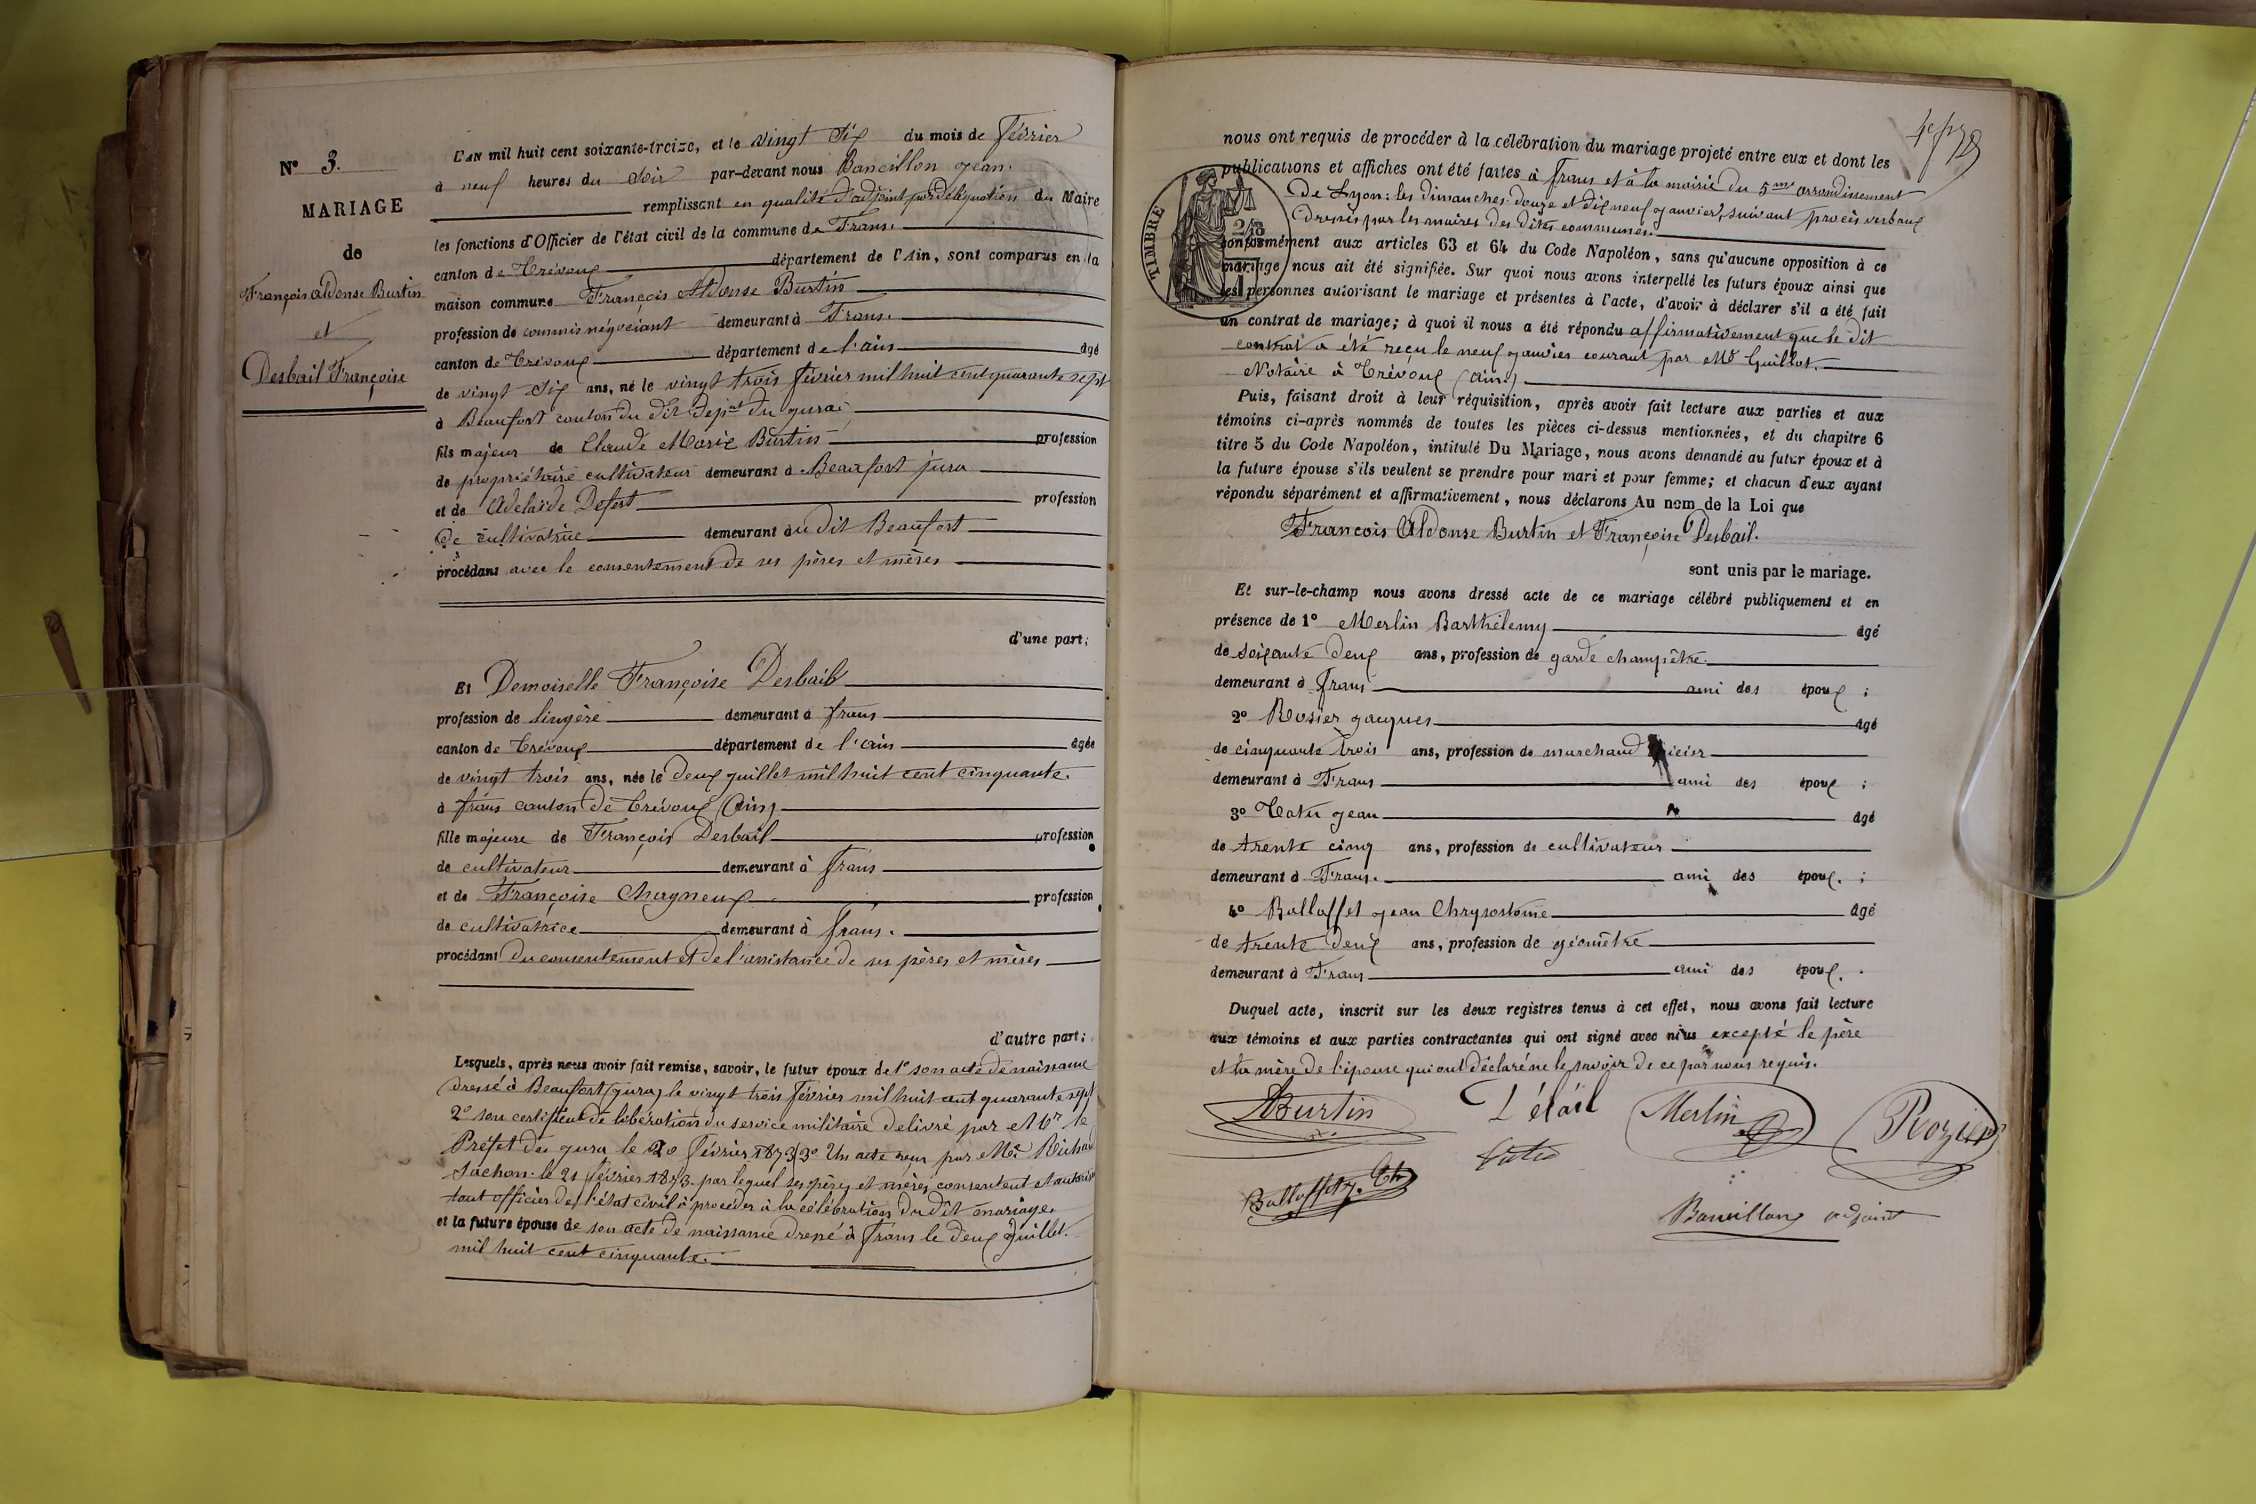 N° 3.
MARIAGE
de
François Aldonse Burtin
et
Desbail Françoise
L'AN mil huit cent soixante-treize, et le vingt six du mois de février
à neuf heures du soir par-devant nous Bancillon Jean.
remplissant en qualité d'adjoint par délégation du Maire
les fonctions d'Officier de l'état civil de la commune de Frans.
canton de Trévoux département de l'Ain, sont comparus en la
maison commune François Aldonse Burtin
profession de commis négociant demeurant à Frans.
canton de Trévoux département de l'ain âgé
de vingt six ans, né le vingt trois février mil huit cent quarante sept
à Beaufort canton du dit dep.nt du jura
fils majeur de Claude Marie Burtin profession
de propriétaire cultivateur demeurant à Beaufort jura
et de Adelaïde Defert profession
de cultivatrice demeurant au dit Beaufort
procédant avec le consentement de ses pères et mères
d'une part;
Et Demoiselle Françoise Desbail
profession de lingère demeurant à frans
canton de Trévoux département de l'ain âgée
de vingt trois ans, née le deux juillet mil huit cent cinquante.
à frans canton de Trévoux (Ain)
fille majeure de François Desbail profession
de cultivateur demeurant à frans
et de Françoise Chagneux profession
de cultivatrice demeurant à frans.
procédant du consentement et de l'assistance de ses pères et mères
d'autre part;
Lesquels, après nous avoir fait remise, savoir, le futur époux de 1° son acte de naissance
dressé à Beaufort (jura) le vingt trois février mil huit cent quarante sept
2° son certificat de libération du service militaire delivré par M.r le
Préfet du jura le 20 février 1873 3° Un acte reçu par Me
Sachon le 21 février 1873 par lequel ses pères et mères consentent et autorise
tout officier de l'état civil à procéder à la célébration du dit mariage.
et la future épouse de son acte de naissance dressé à frans le deux juillet.
mil huit cent cinquante.
nous ont requis de procéder à la célébration du mariage projeté entre eux et dont les
publications et affiches ont été faites à frans et à la mairie du 5me arrondissement
de Lyon: les dimanches douze et dix neuf janvier, suivant procès verbaux
dressés par les maires des dites communes.
conformément aux articles 63 et 64 du Code Napoléon, sans qu'aucune opposition à ce
mariage nous ait été signifiée. Sur quoi nous avons interpellé les futurs époux ainsi que
les personnes autorisant le mariage et présentes à l'acte, d'avoir à déclarer s'il a été fait
un contrat de mariage; à quoi il nous a été répondu affirmativement que le dit
contrat a été reçu le neuf janvier courant par Me Guillot.
Notaire à Trévoux (Ain)
TIMBRE
Puis, faisant droit à leur réquisition, après avoir fait lecture aux parties et aux
témoins ci-après nommés de toutes les pièces ci-dessus mentionnées, et du chapitre 6
titre 5 du Code Napoléon, intitulé Du Mariage, nous avons demandé au futur époux et à
la future épouse s'ils veulent se prendre pour mari et pour femme; et chacun d'eux ayant
répondu séparément et affirmativement, nous déclarons Au nom de la Loi que
François Aldonse Burtin et Françoise Desbail.
sont unis par le mariage.
Et sur-le-champ nous avons dressé acte de ce mariage célébré publiquement et en
présence de 1° Merlin Barthélemy âgé
de soixante deux ans, profession de garde champêtre.
demeurant à frans ami des époux ;
2° Rosier Jacques âgé
de cinquante trois ans, profession de marchand épicier
demeurant à Frans ami des époux ;
3° Tatu Jean âgé
de trente cinq ans, profession de cultivateur
demeurant à Frans. ami des époux. ;
4° Balloffet Jean Chrysostome âgé
de trente deux ans, profession de géomètre
demeurant à Frans ami des époux.
Duquel acte, inscrit sur les deux registres tenus à cet effet, nous avons fait lecture
aux témoins et aux parties contractantes qui ont signé avec nous excepté le père
et la mère de l'épouse qui ont déclaré ne le savoir de ce par nous requis.
ABurtin
Merlin
Rozier
Balloffet J. Ch
Bancillon adjoint